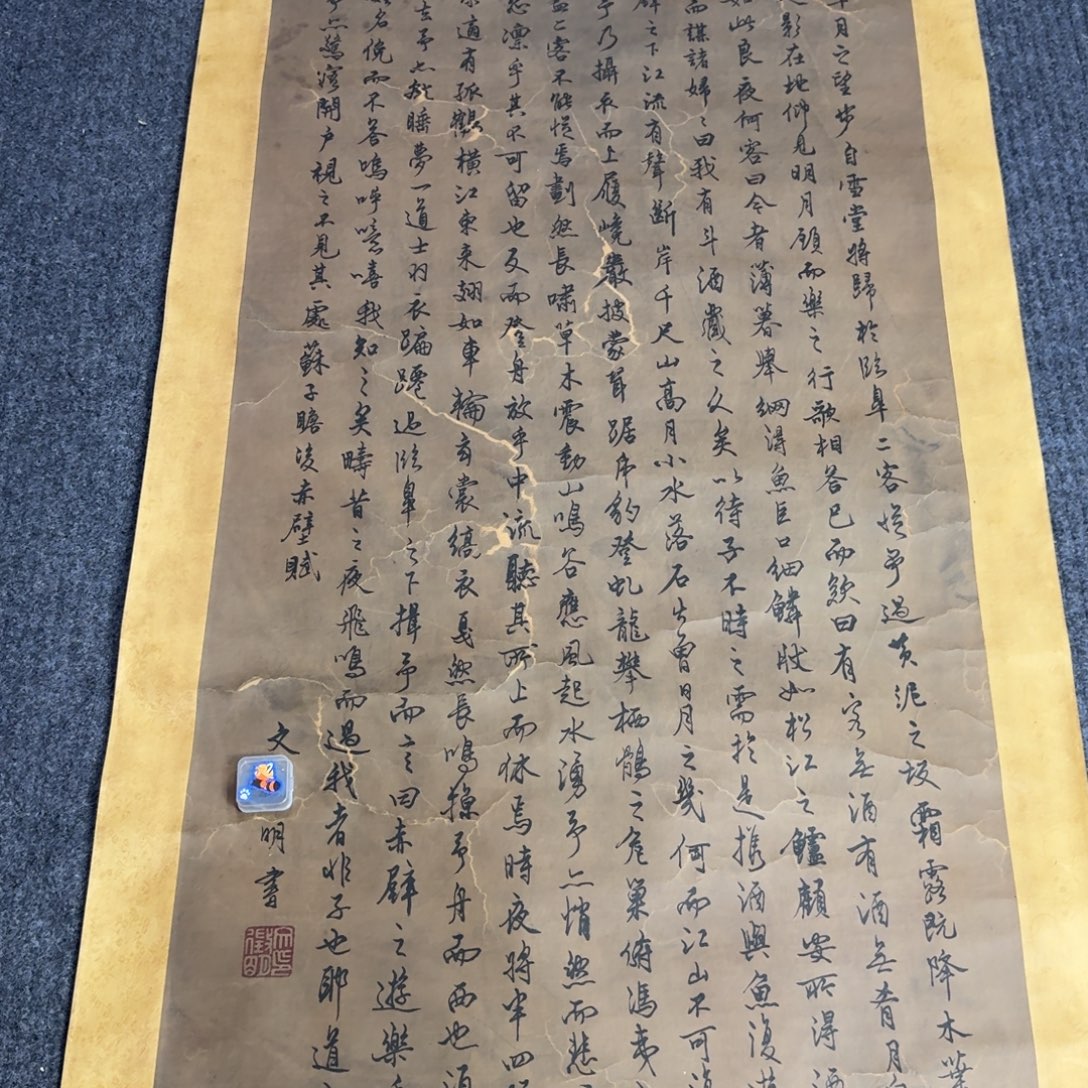 月之望步自雪堂將歸於臨皋二客從予過黃泥之坂霜露既降木葉
影在地仰見明月顧而樂之行歌相答已而歎曰有客無酒有酒無肴月
如此良夜何客曰今者薄暮舉網得魚巨口細鱗狀如松江之鱸顧安所得酒
而謀諸婦〻曰我有斗酒藏之久矣以待子不時之需於是攜酒與魚復遊
之下江流有聲斷岸千尺山高月小水落石出曾日月之幾何而江山不可
予乃攝衣而上履巉巖披蒙茸踞虎豹登虬龍攀栖鶻之危巢俯馮夷
二客不能從焉劃然長嘯草木震動山鳴谷應風起水湧予亦悄然而悲
恐凜乎其不可留也反而登舟放乎中流聽其所止而休焉時夜將半四
適有孤鶴橫江東來翅如車輪玄裳縞衣戛然長鳴掠予舟而西也須
去予亦就睡夢一道士羽衣蹁躚過臨皋之下揖予而言曰赤壁之遊樂
名俛而不答嗚呼噫嘻我知之矣疇昔之夜飛鳴而過我者非子也耶道
亦驚寤開戶視之不見其處蘇子瞻後赤壁賦
文明書